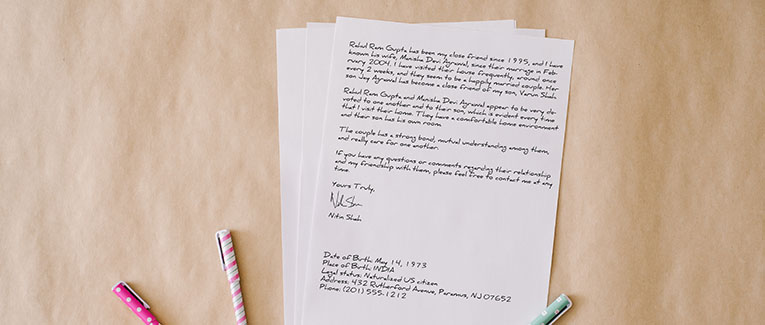 Rahul Ram Gupta has been my close friend since 1995, and I have
known his wife, Manisha Devi Agrawal, since their marriage in Feb-
ruary 2004. I have visited their house frequently, around once
every 2 weeks, and they seem to be a happily married couple. Her
son Jay Agrawal has become a close friend of my son, Varun Shah.
Rahul Ram Gupta and Manisha Devi Agrawal appear to be very de-
voted to one another and to their son, which is evident every time
that I visit their home. They have a comfortable home environment
and their son has his own room.
The couple has a strong bond, mutual understanding among them,
and really care for one another.
If you have any questions or comments regarding their relationship
and my friendship with them, please feel free to contact me at any
time.
Yours Truly,
Nitin Shah
Date of Birth: May 14, 1973
Place of Birth: INDIA
Legal status: Naturalized US citizen
Address: 432 Rutherford Avenue, Paramus, NJ 07652
Phone: (201) 555-1212